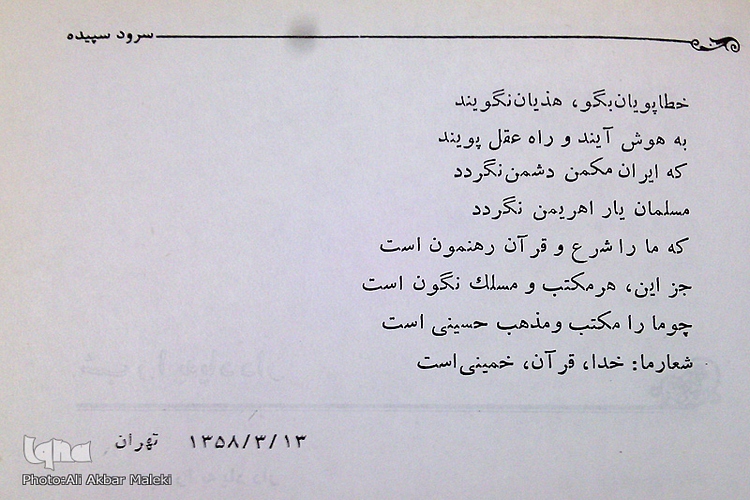 سرود سپیده
خطاپویان بگو، هذیان نگویند
به هوش آیند و راه عقل پویند
که ایران مکمن دشمن نگردد
مسلمان یار اهریمن نگردد
که ما را شرع و قرآن رهنمون است
جز این، هر مکتب و مسلك نگون است
چو ما را مکتب و مذهب حسینی است
شعار ما: خدا، قرآن، خمینی است
۱۳۵۸/۳/۱۳ تهران
iqna
Photo:Ali Akbar Maleki